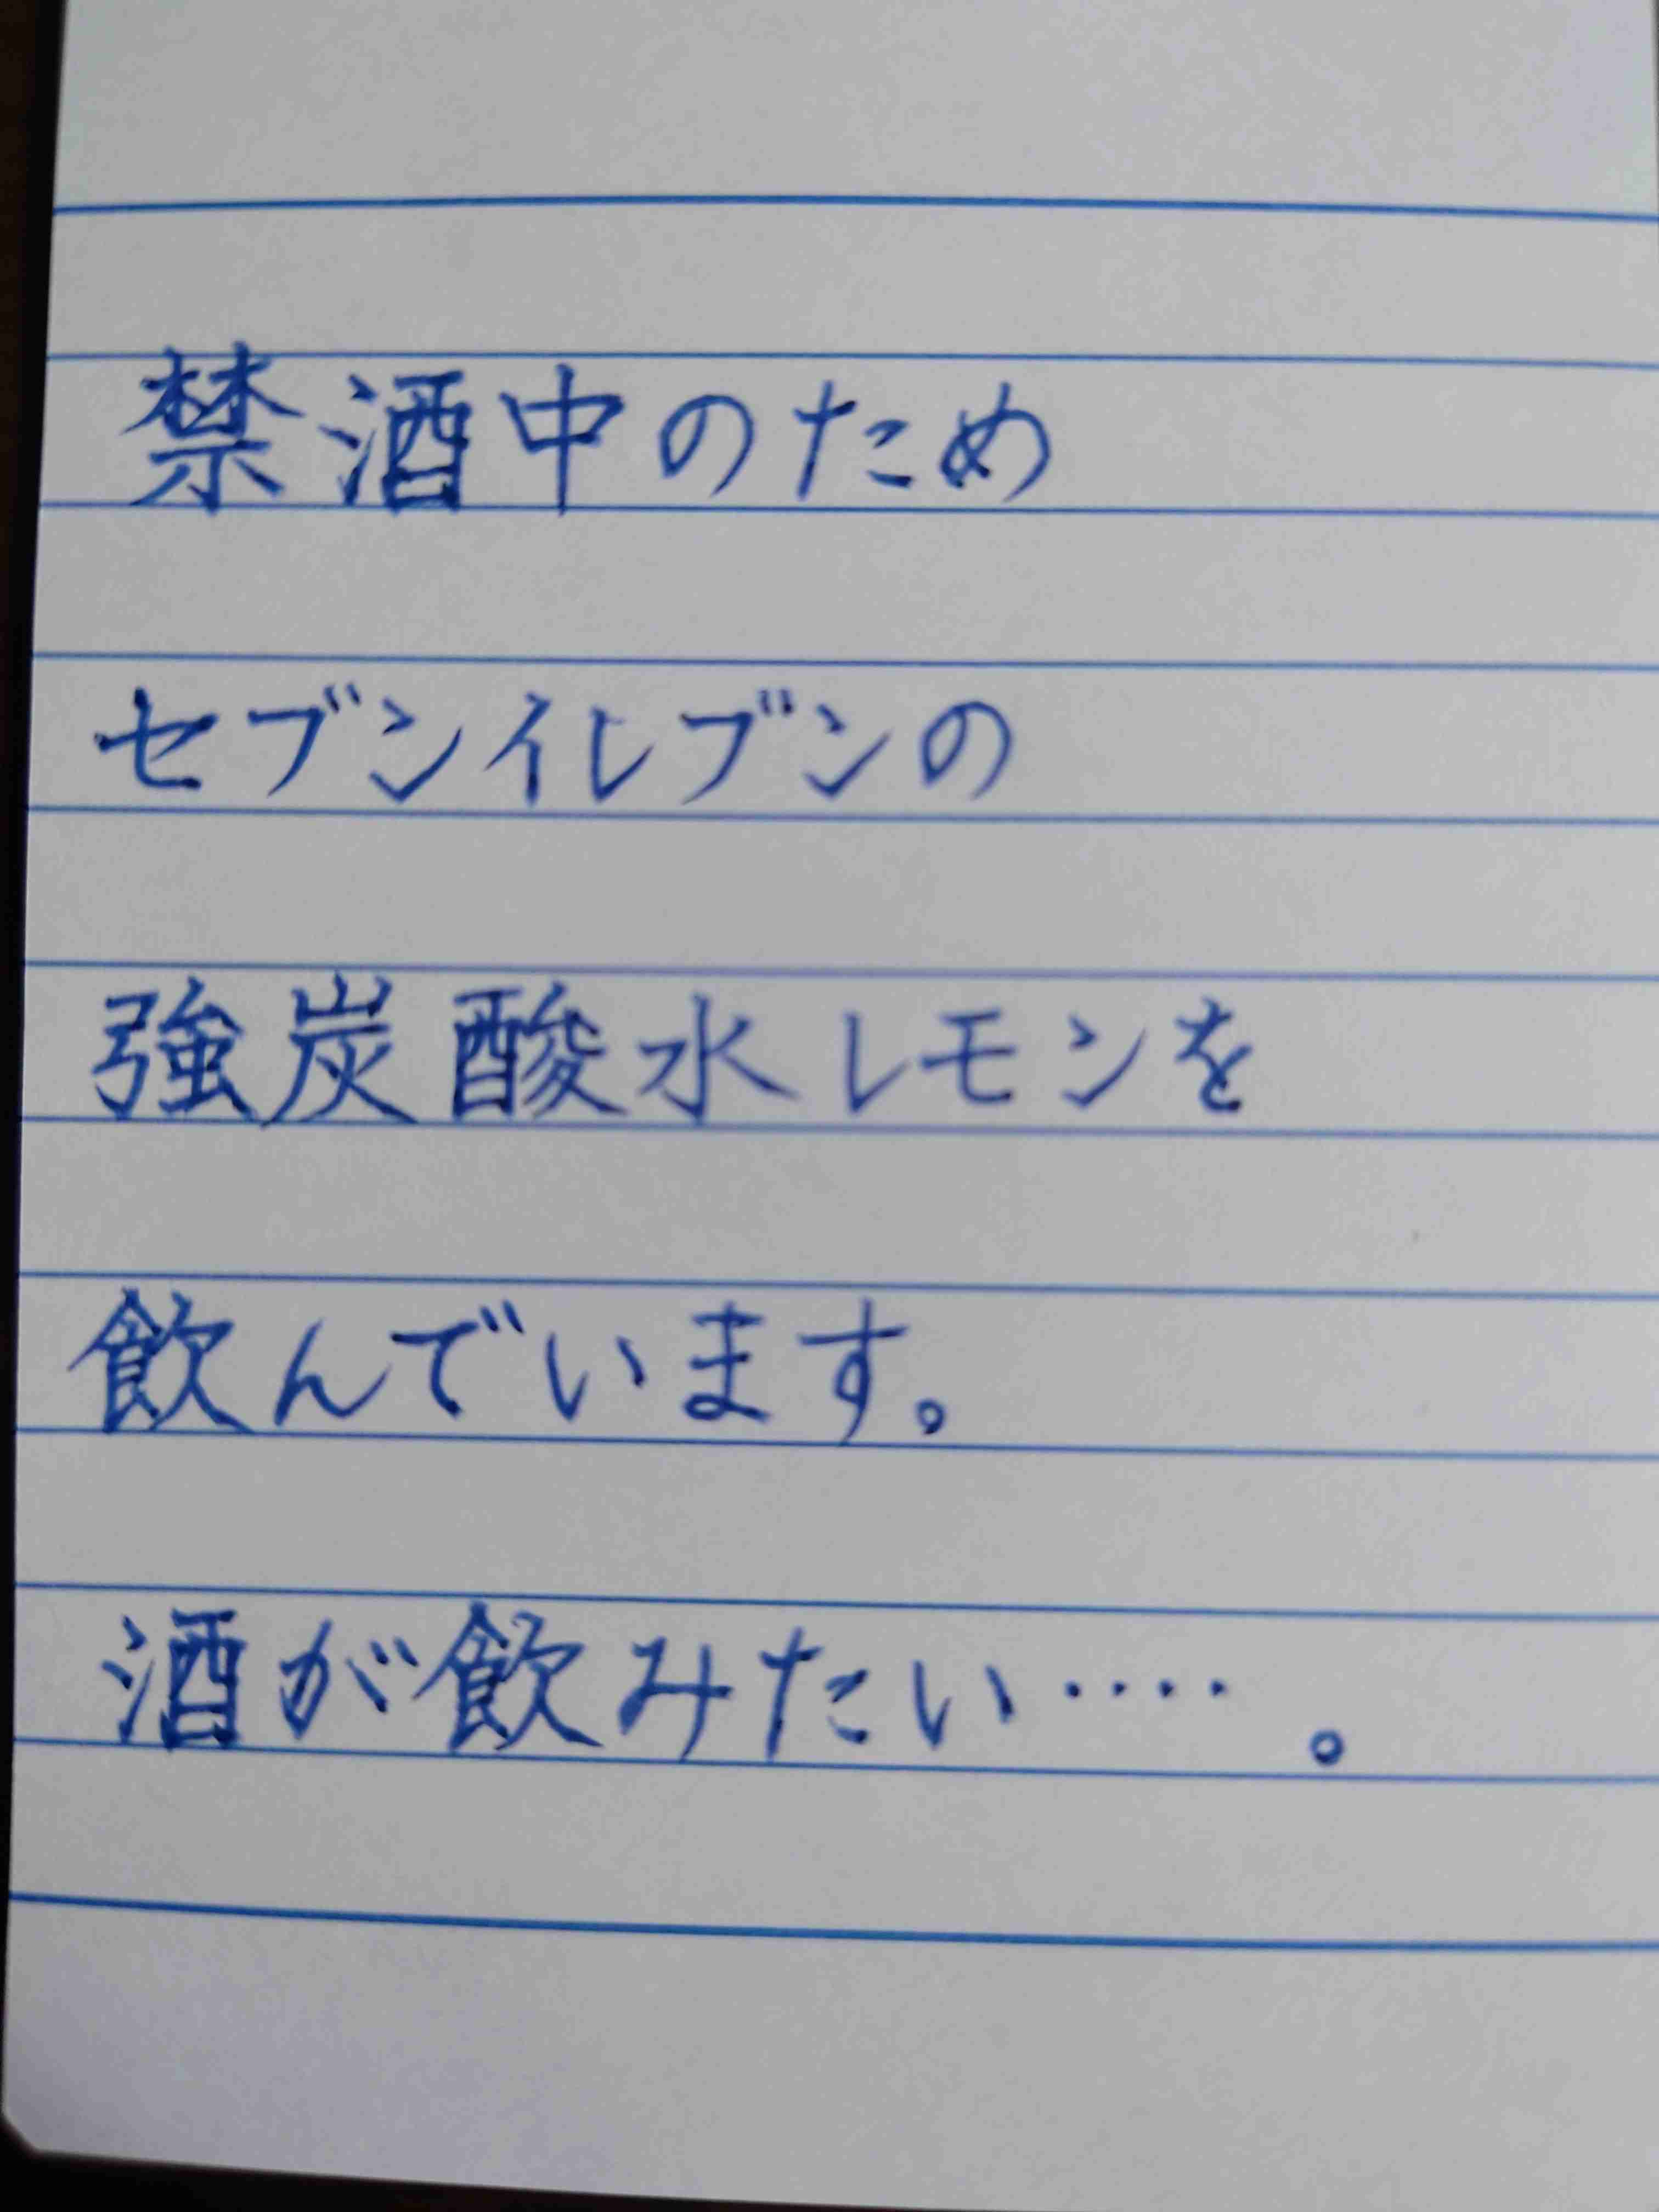 禁酒中のため
セブンイレブンの
強炭酸水レモンを
飲んでいます。
酒が飲みたい‥‥。